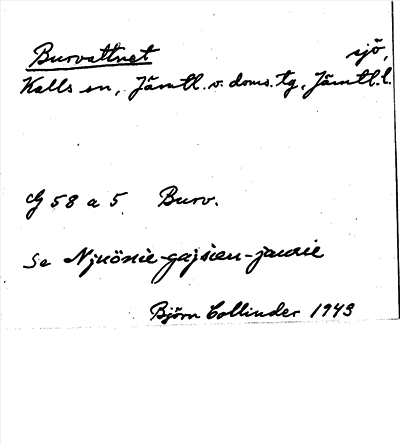 Burvattnet sjö,
Kalls sn, Jämtl. v. doms. tg, Jämtl. l.
G 58 a 5 Burv.
Se Njuönie-gajsien-jaurie
Björn Collinder 1943